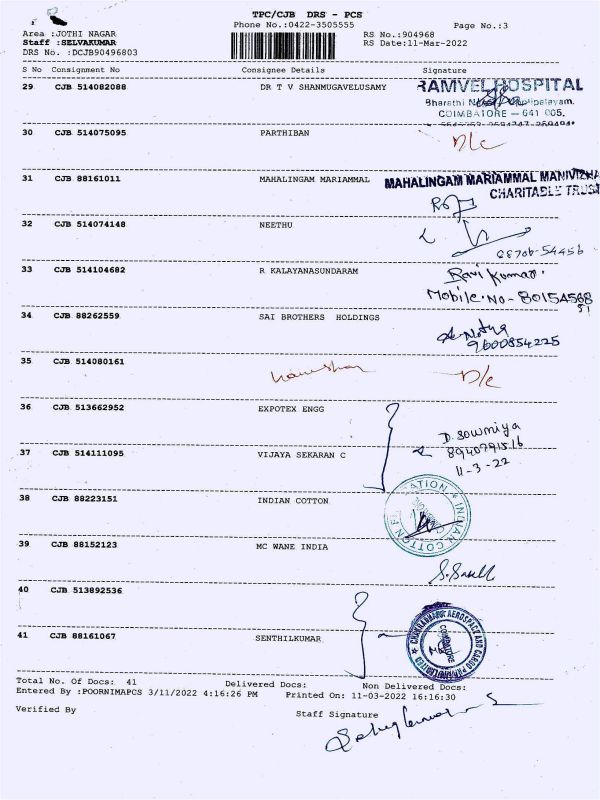 TPC/CJB DRS - PCS
Phone No.:0422-3505555 Page No.:3
Area :JOTHI NAGAR RS No.:904968
Staff :SELVAKUMAR RS Date:11-Mar-2022
DRS No. :DCJB90496803
S No Consignment No Consignee Details Signature
29 CJB 514082088 DR T V SHANMUGAVELUSAMY RAMVEL HOSPITAL
Bharathi
COIMBATORE - 641 005.
30 CJB 514075095 PARTHIBAN D/c
31 CJB 88161011 MAHALINGAM MARIAMMAL MAHALINGAM MARIAMMAL MANIVIZHA
CHARITABLE TRUST
32 CJB 514074148 NEETHU
88706-54456
33 CJB 514104682 R KALAYANASUNDARAM Ravi Kumar.
Mobile.No-
34 CJB 88262559 SAI BROTHERS HOLDINGS
9600854225
35 CJB 514080161 D/c
36 CJB 513662952 EXPOTEX ENGG
D. Sowmiya
37 CJB 514111095 VIJAYA SEKARAN C
11-3-22
38 CJB 88223151 INDIAN COTTON
INDIAN COTTON
39 CJB 88152123 MC WANE INDIA
40 CJB 513892536
41 CJB 88161067 SENTHILKUMAR
AEROSPACE AND CARGO PRIVATE LIMITED
COIMBATORE
Total No. Of Docs: 41 Delivered Docs: Non Delivered Docs:
Entered By :POORNIMAPCS 3/11/2022 4:16:26 PM Printed On: 11-03-2022 16:16:30
Verified By Staff Signature